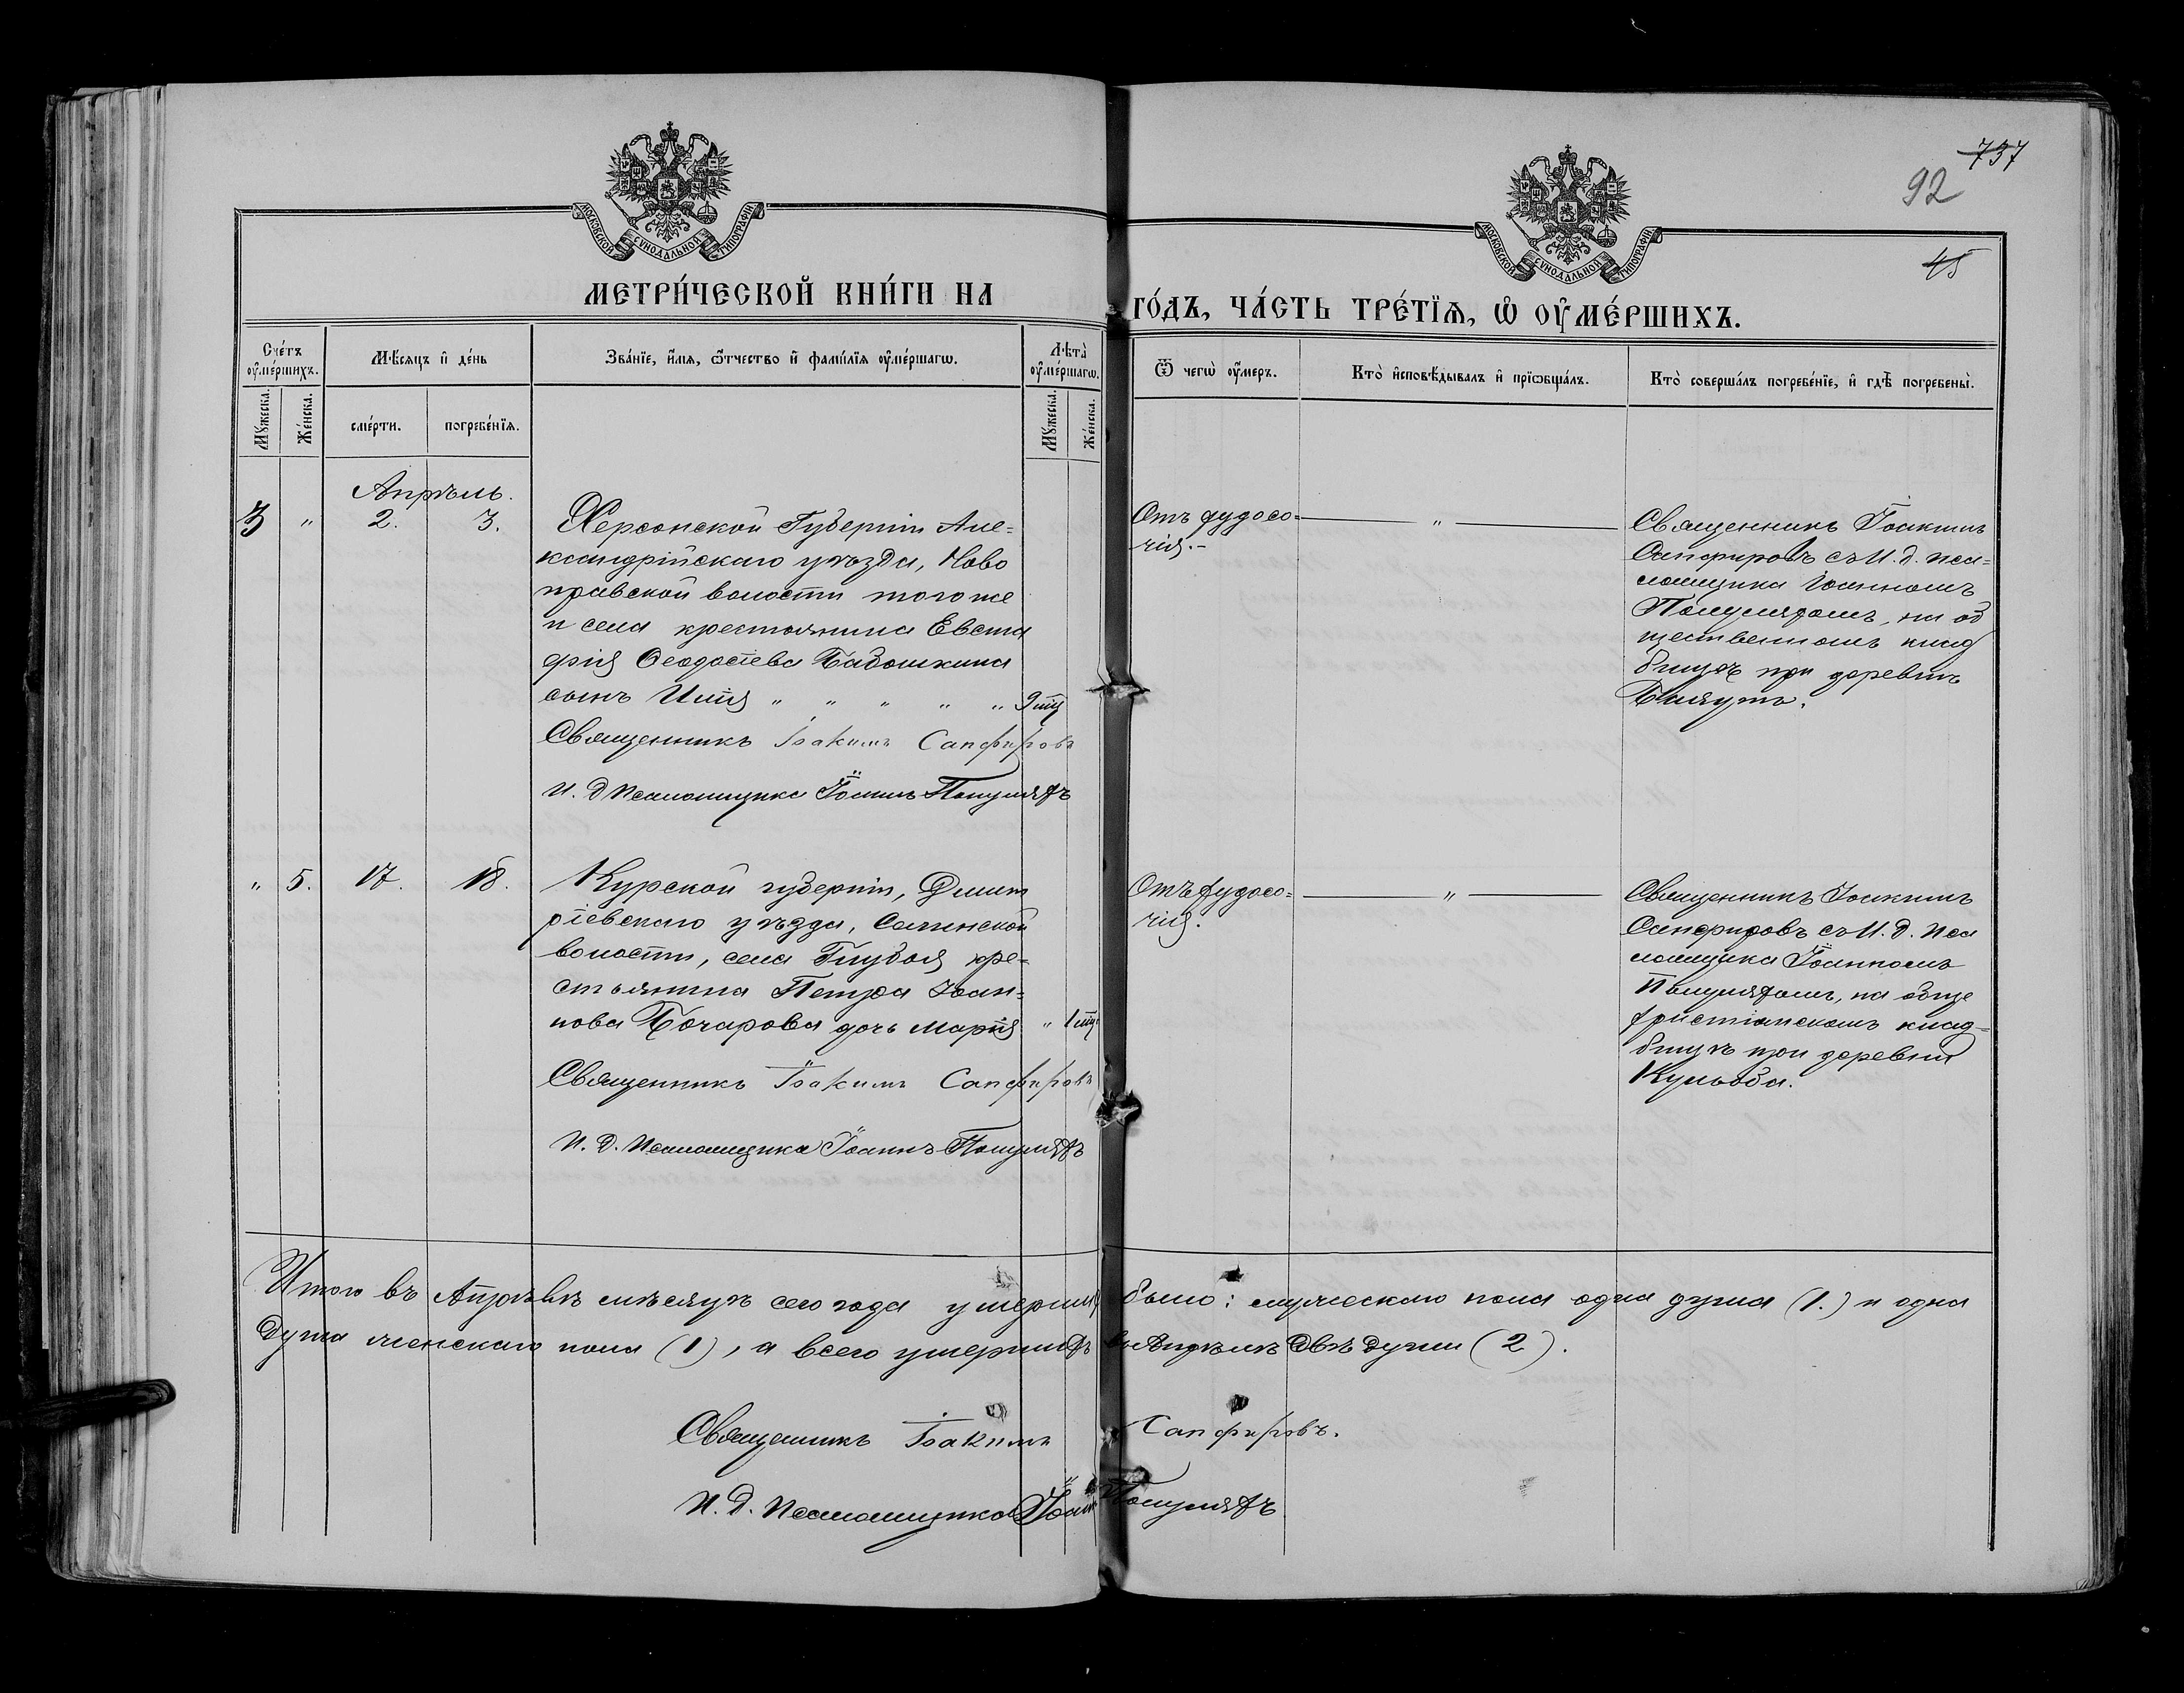 737
92
45
МОСКОВСКОЙ СѴНОДАЛЬНОЙ ТИПОГРАФІИ
МОСКОВСКОЙ СѴНОДАЛЬНОЙ ТИПОГРАФІИ
МЕТРИ́ЧЕСКОЙ КНИ́ГИ НА ГО́ДЪ, ЧА́СТЬ ТРЕ́ТІѦ, Ѡ҆ ОУ҆МЕ́РШИХЪ.
Сче́тъ оу҆ме́ршихъ.
Мѣсяцъ и҆ де́нь
Зва́нїе, и҆́мѧ, ѻ҆́тчество и҆ фами́лїѧ оу҆ме́ршагѡ.
Лѣта̀ оу҆ме́ршагѡ.
Ѿ чегѡ̀ оу҆́меръ.
Кто̀ и҆сповѣ́дывалъ и҆ прїѡбща́лъ.
Кто̀ соверша́лъ погребе́нїе, и҆ гдѣ̀ погребены̀.
Мꙋ́жеска.
Же́нска.
сме́рти.
погребе́нїѧ.
Мꙋ́жеска.
Же́нска.
Апрѣль.
3 " 2. 3.
Херсонской Губерніи Але=
ксандрійскаго уѣзда, Ново
правской волости того же
и села крестьянина Евста
фія Ѳеодосіева Бабошкина
сынъ Илія " " " " " 9 мц
Священникъ Іоакимъ Сапфировъ
И. д Псаломщика Іоаннъ Полуляхъ
Отъ худосо=
чія.-
"
Священникъ Іоакимъ
Сапфировъ съ И. д. пса=
ломщика Іоанномъ
Полуляхомъ, на об
щественномъ клад
бищѣ при деревнѣ
" 5. 17. 18.
Курской губерніи, Димит
ріевскаго уѣзда,
волости, села Глубоя кре=
стьянина Петра Іоан=
нова Бочарова дочь Марія " 1 мц
Священникъ Іоакимъ Сапфировъ
И. д. Псаломщика Іоаннъ Полуляхъ
Отъ худосо=
чія.
"
Священникъ Іоакимъ
Сапфировъ съ И. д. Пса
ломщика Іоанномъ
Полуляхомъ, на обще
христіанскомъ клад=
бищѣ при деревни
Кульоба.
Итого въ Апрѣлѣ мѣсяцѣ сего года умершихъ было: мужескаго пола одна душа (1.) и одна
душа женскаго пола (1), а всего умершихъ въ Апрѣлѣ двѣ души (2).
Священникъ Іоакимъ Сапфировъ.
И. д. Псаломщика Іоаннъ Полуляхъ